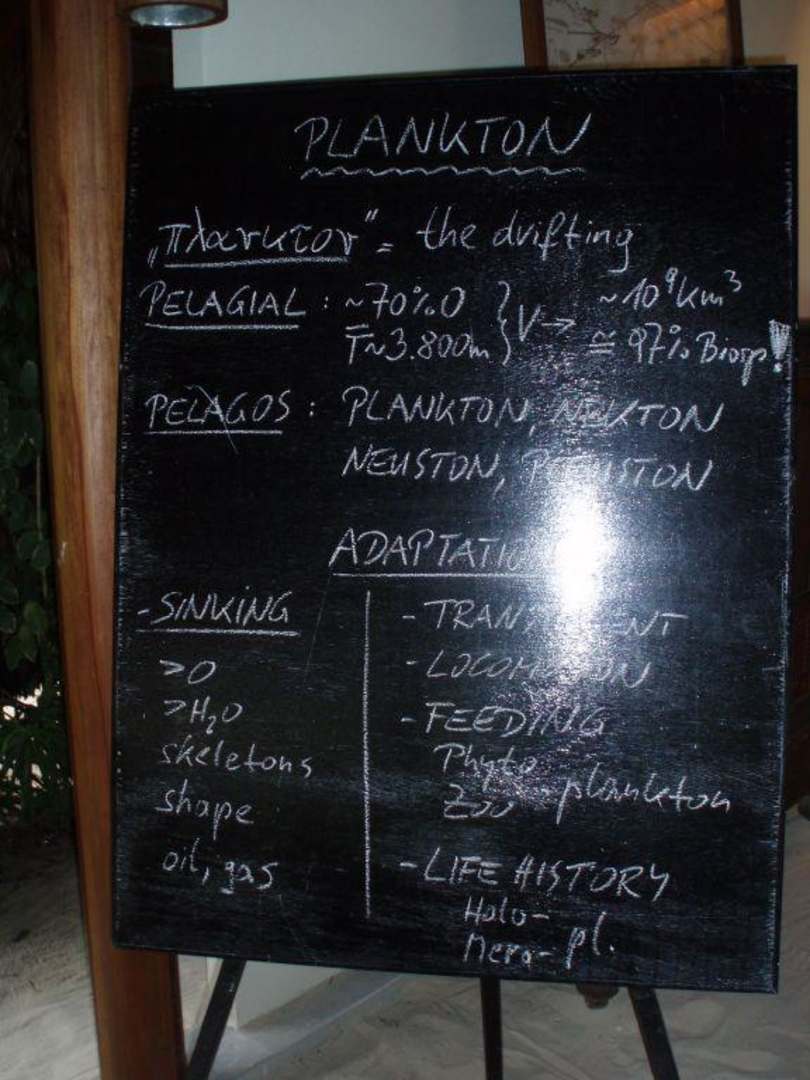 PLANKTON
„πλανκτον" = the drifting
PELAGIAL : ~70% O } V → ~10⁹ km³
T~3.800m ≅ 97% Biosp!
PELAGOS : PLANKTON, NEKTON
NEUSTON, PLEUSTON
ADAPTATION
- SINKING
>O
>H₂O
skeletons
shape
oil, gas
- TRANSPARENT
- LOCOMOTION
- FEEDING
Phyto
Zoo -plankton
- LIFE HISTORY
Holo-
Mero- pl.